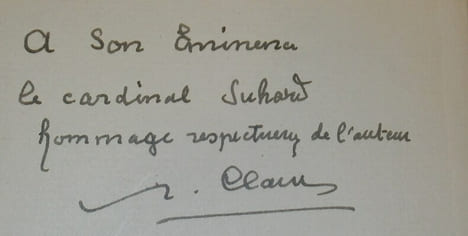 A Son Eminence
le cardinal Suhard
hommage respectueux de l'auteur